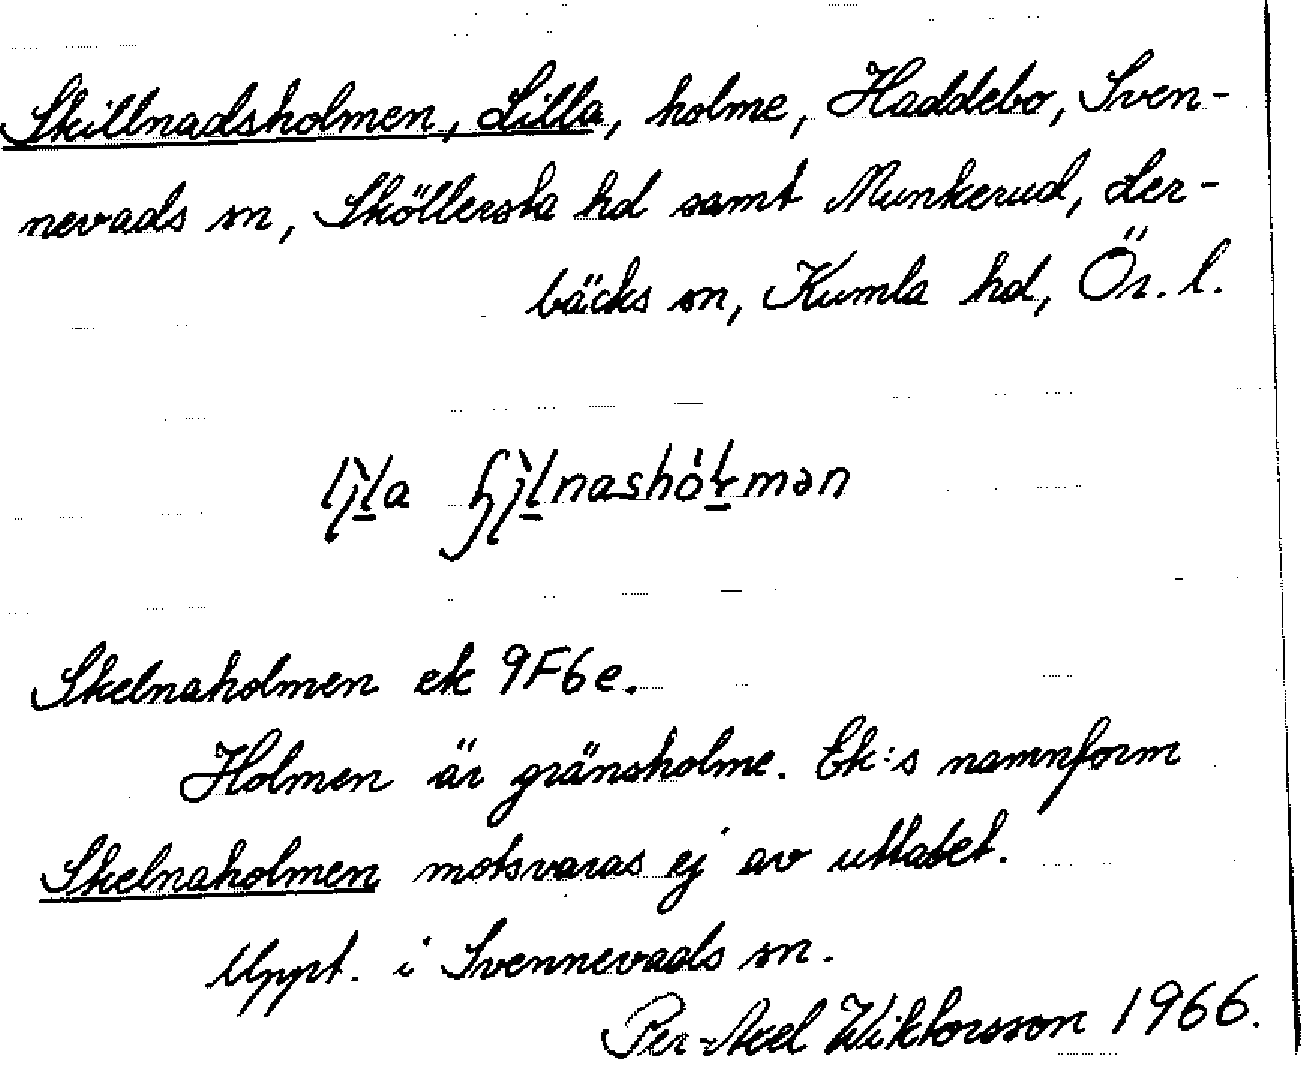 Skillnadsholmen, Lilla, holme, Haddebo, Sven-
nevads sn, Sköllersta hd samt Munkerud, Ler-
bäcks sn, Kumla hd, Ör. l.
Skelnaholmen ek 9F6e.
Holmen är gränsholme. Ek:s namnform
Skelnaholmen motsvaras ej av uttalet.
Uppt. i Svennevads sn.
Per-Axel Wiktorsson 1966.